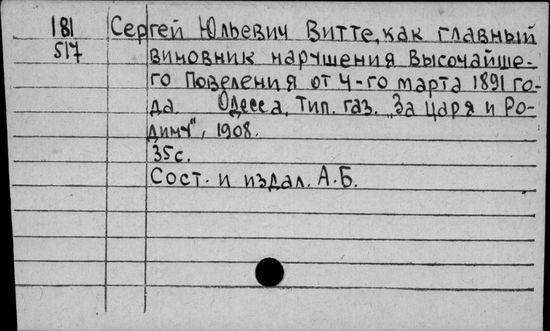 181 Сергей Юльевич Витте, как главный
517 виновник нарушения Высочайше-
го Повеления от 4-го марта 1891 го-
да. Одесса, Тип. газ. „За Царя и Ро-
дину", 1908.
35с.
Сост. и издал. А.Б.